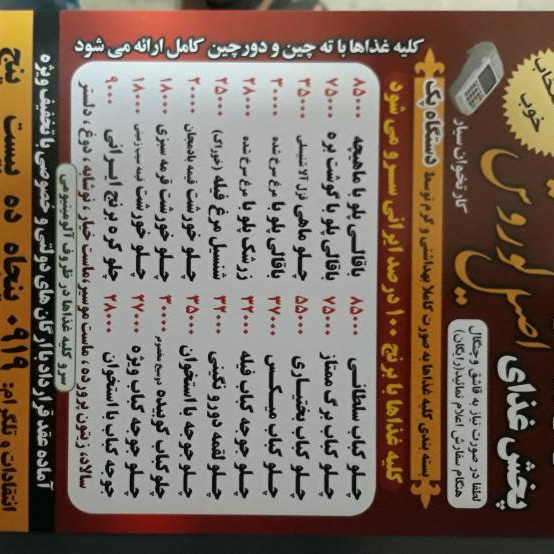 پخش غذای
اصیل کوروش
خوب
کارتخوان سیار
لطفا در صورت نیاز به قاشق و چنگال
هنگام سفارش اعلام نمائید (رایگان)
بسته بندی کلیه غذاها به صورت کاملا بهداشتی و گرم توسط دستگاه پک
کلیه غذاها با برنج ۱۰۰ درصد ایرانی سرو می شود
چلو کباب سلطانی ۸۵۰۰۰
چلو کباب برگ ممتاز ۷۵۰۰۰
چلو کباب بختیاری ۵۵۰۰۰
چلو کباب میکس ۳۷۰۰۰
چلو جوجه کباب فیله ۳۲۰۰۰
چلو لقمه دورو نگینی ۳۲۰۰۰
چلو جوجه با استخوان ۳۵۰۰۰
چلو کباب کوبیده ۳۰۰۰۰
چلو کباب ویژه ۲۷۰۰۰
جوجه کباب با استخوان ۲۸۰۰۰
باقالی پلو با ماهیچه ۸۵۰۰۰
باقالی پلو با گوشت بره ۷۵۰۰۰
چلو ماهی قزل آلا ۳۵۰۰۰
باقالی پلو با مرغ سرخ شده ۳۰۰۰۰
زرشک پلو با مرغ سرخ شده ۲۸۰۰۰
شنسل مرغ فیله (خوراک) ۲۵۰۰۰
چلو خورشت قیمه بادمجان ۲۰۰۰۰
چلو خورشت قرمه سبزی ۱۸۰۰۰
چلو خورشت قیمه سیب زمینی ۱۸۰۰۰
چلو کره برنج ایرانی ۹۰۰۰
سالاد، زیتون پرورده، ماست موسیر، ماست خیار، نوشابه، دوغ، دلستر
کلیه غذاها با ته چین و دورچین کامل ارائه می شود
سرو کلیه غذاها در ظروف آلومینیومی
آماده عقد قرارداد با ارگان های دولتی و خصوصی با تخفیف ویژه
انتقادات و تلگرام:
۰۹۱۹ پنجاه ده بیست پنج